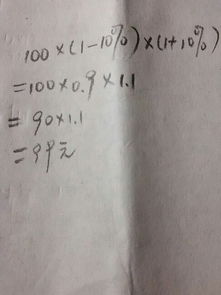 100×(1-10%)×(1+10%)
=100×0.9×1.1
=90×1.1
=99元